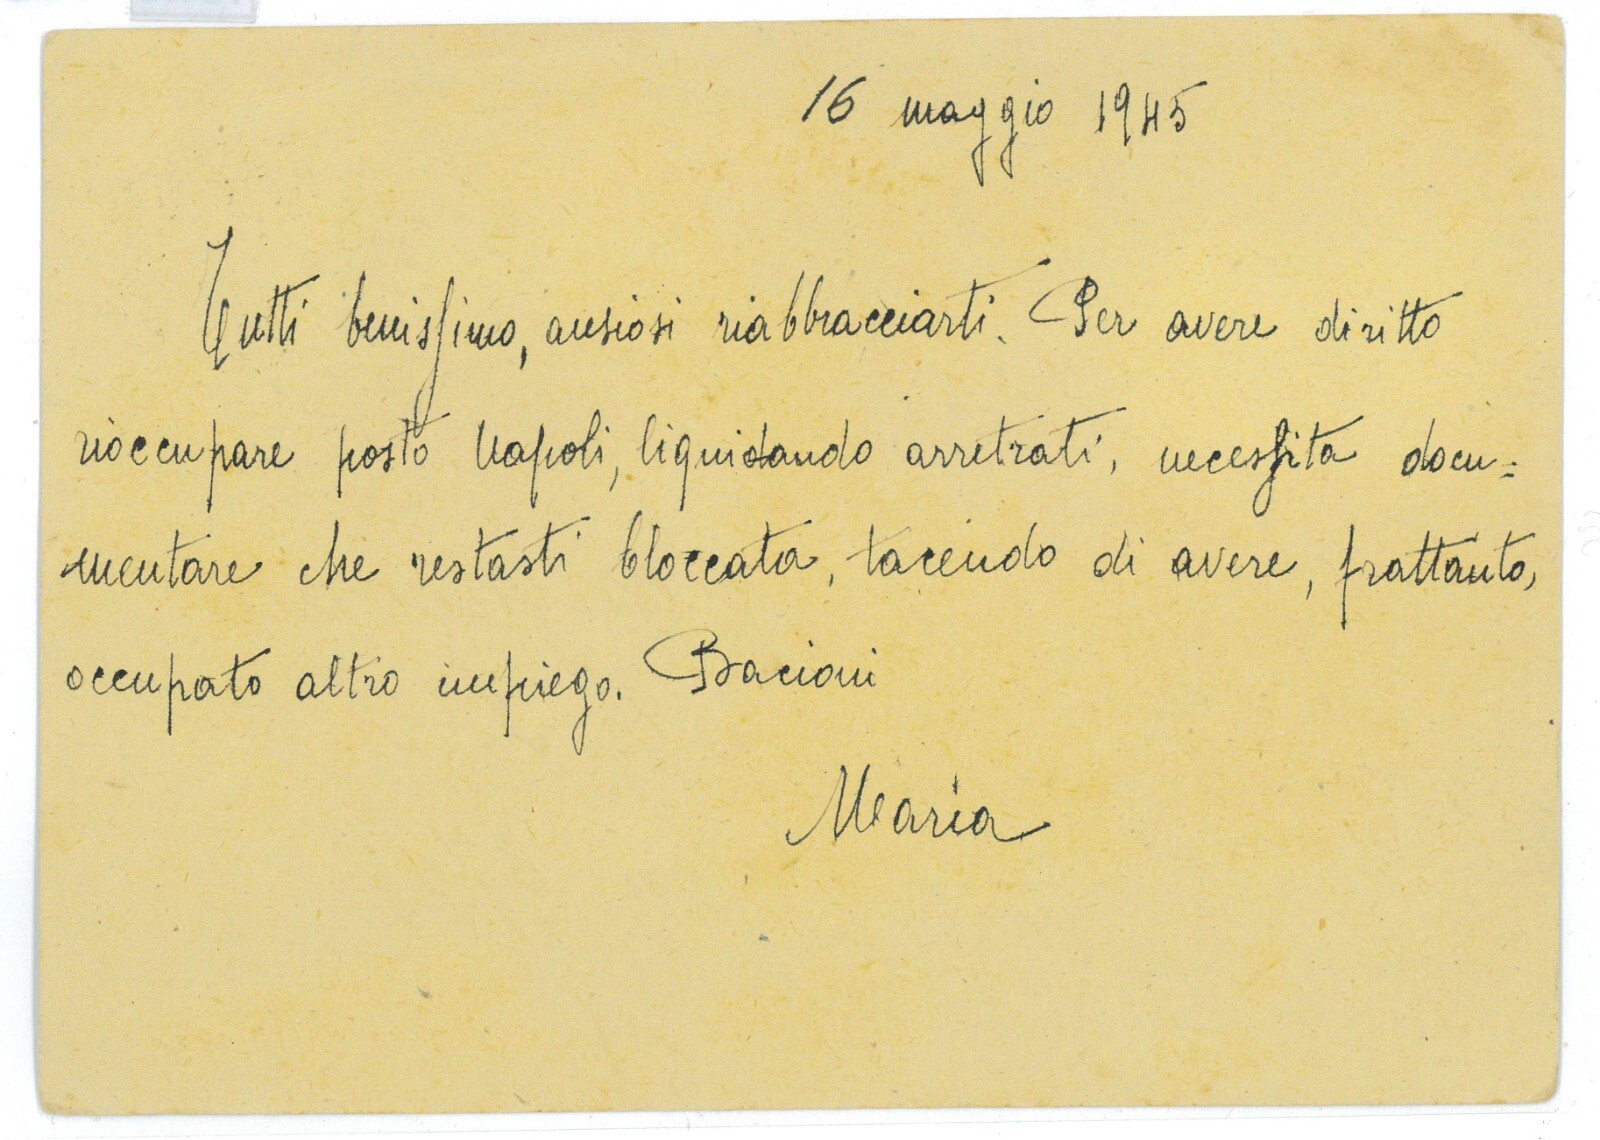 16 maggio 1945
Tutti benissimo, ansiosi riabbracciarti. Per avere diritto
rioccupare posto Napoli, liquidando arretrati, necessita docu=
mentare che restasti bloccata, tacendo di avere, frattanto,
occupato altro impiego. Bacioni
Maria